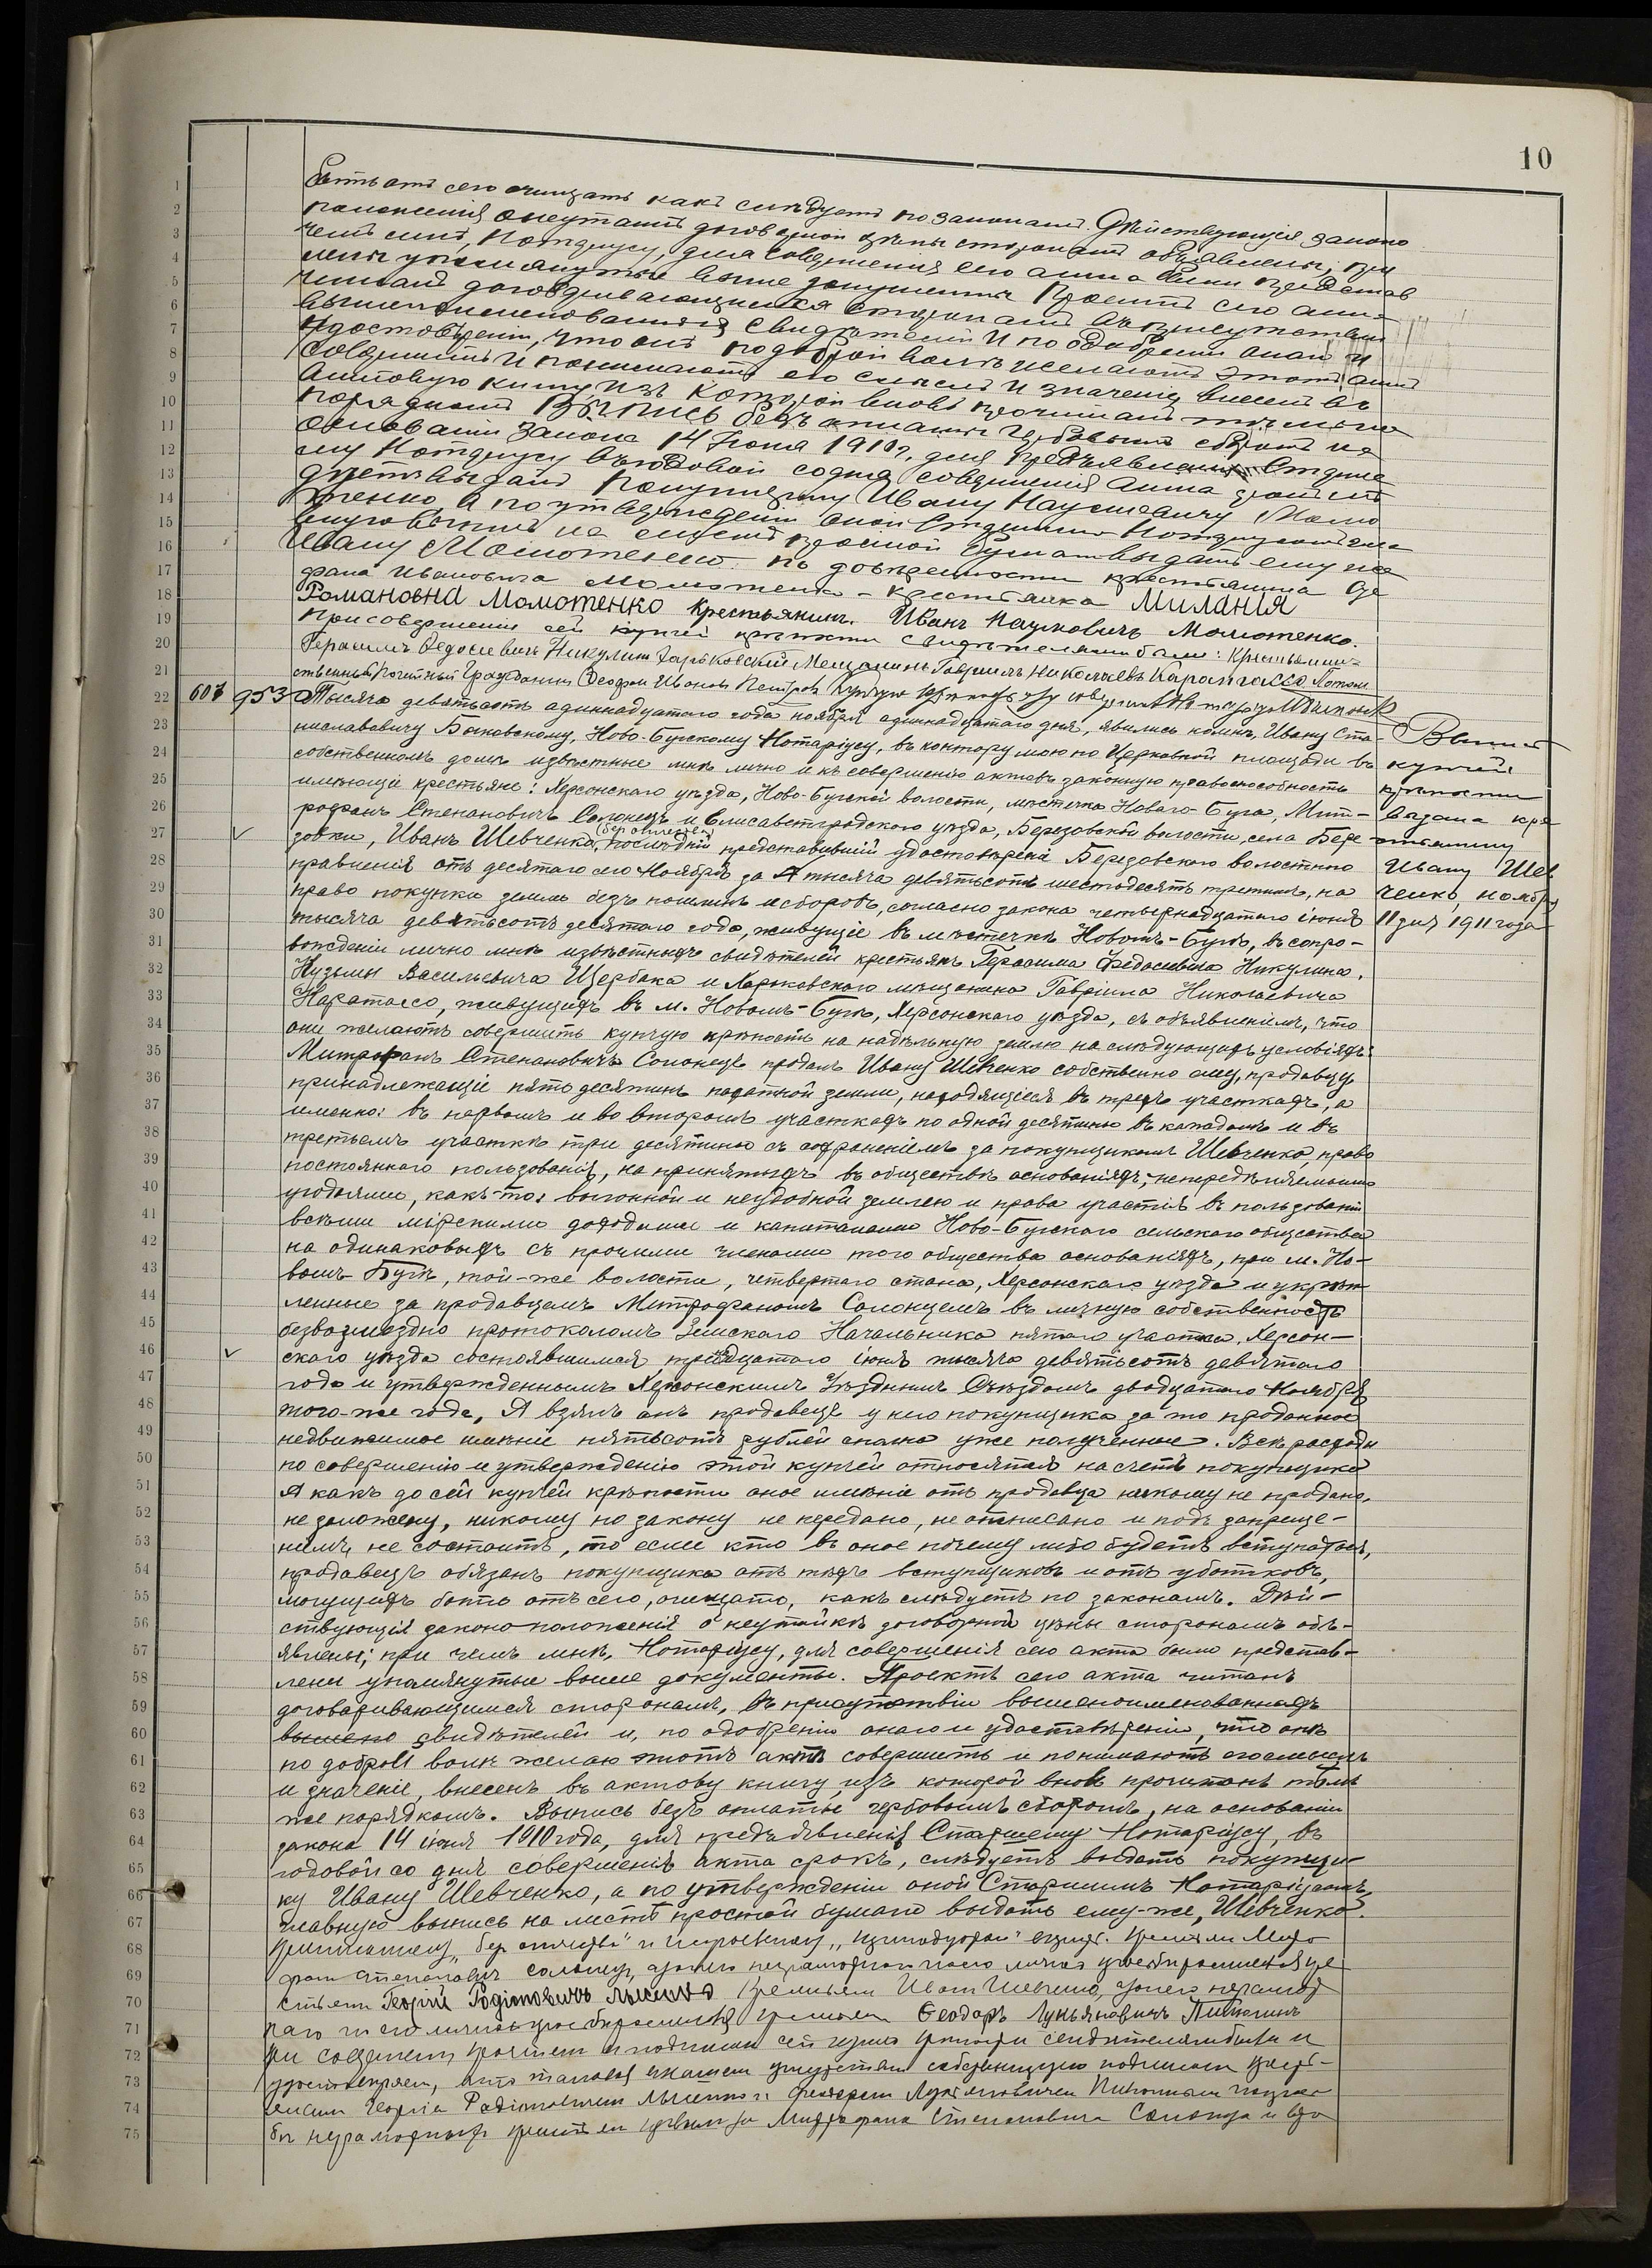 10
отъ сего очищать какъ слѣдуетъ по законамъ. Дѣйствующія законо
положенія о неутайкѣ договорной цѣны сторонамъ объявлены; при
чемъ мнѣ, Нотаріусу, для совершенія сего акта были представ
лены упомянутые выше документы. Проектъ сего акта
читанъ договаривающимся сторонамъ въ присутствіи
вышепоименованныхъ свидѣтелей и по одобреніи онаго и
удостовѣреніи, что они по доброй волѣ желаютъ этотъ актъ
совершить и понимаютъ его смыслъ и значеніе, внесенъ въ
актовую книгу изъ которой вновь прочитанъ тѣмъ же
порядкомъ. Выпись безъ оплаты гербовымъ сборомъ на
основаніи закона 14 Іюня 1910 г. для предъявленія Старше
му Нотаріусу въ годовой со дня совершенія акта срокъ слѣ
дуетъ выдать покупщику Ивану Наумовичу Момо
тенко, а по утвержденіи оной Старшимъ Нотаріусомъ глав
ную выпись на листѣ простой бумаги выдать ему же
Ивану Момотенко. По довѣренности крестьянина
Ивановича Момотенко - крестьянка Миланія
Романовна Момотенко крестьянинъ. Иванъ Наумовичъ Момотенко.
При совершеніи сей купчей крѣпости свидѣтелями были: Крестьянинъ
Герасимъ Ѳедосіевичъ Никулинъ Харьковскій Мещанинъ Гавріилъ Николаевъ Каратассо Потом
ственный Почетный Гражданинъ Иванов Петров
607 953 Тысяча девятьсотъ одиннадцатаго года ноября одиннадцатаго дня, явились ко мнѣ, Ивану Ста-
ниславовичу Быковскому, Ново-Бугскому Нотаріусу, въ контору мою по Церковной площади въ
собственномъ домѣ извѣстные мнѣ лично и къ совершенію актовъ законную правоспособность
имѣющіе крестьяне: Херсонскаго уѣзда, Ново-Бугской волости, мѣстечка Новаго-Буга, Мит-
рофанъ Степановичъ Солонецъ и Елисаветградскаго уѣзда, Березовской волости, села Бере
зовки, Иванъ Шевченко, (без отчества) послѣдній представившій удостовѣреніе Березовскаго волостного
правленія отъ десятаго сего Ноября за № тысяча девятьсотъ шестьдесятъ третьимъ, на
право покупки земли безъ пошлинъ и сборовъ, согласно закона четырнадцатаго іюня
тысяча девятьсотъ десятаго года, живущіе въ мѣстечкѣ Новомъ-Бугѣ, въ сопро-
вожденіи лично мнѣ извѣстныхъ свидѣтелей крестьянъ Герасима Федосіевича Никулина,
Кузьмы Васильевича Щербака и Харьковскаго мѣщанина Гавріила Николаевича
Каратассо, живущихъ въ м. Новомъ-Бугѣ, Херсонскаго уѣзда, съ объявленіемъ, что
они желаютъ совершить купчую крѣпость на надѣльную землю на слѣдующихъ условіяхъ:
Митрофанъ Степановичъ Солонецъ продалъ Ивану Шевченко собственно ему, продавцу,
принадлежащіе пять десятинъ пахатной земли, находящіеся въ трехъ участкахъ, а
именно: въ первомъ и во второмъ участкахъ по одной десятинѣ въ каждомъ и въ
третьемъ участкѣ три десятины съ сохраненіемъ за покупщикомъ Шевченко, право
постояннаго пользованія, на принятыхъ въ обществѣ основаніяхъ, непередѣляемыми
угодьями, какъ-то: выгонной и неудобной землею и права участія въ пользованіи
всѣми мірскими доходами и капиталами Ново-Бугскаго сельскаго общества
на одинаковыхъ съ прочими членами того общества основаніяхъ, при м. Но-
вомъ Бугѣ, той-же волости, четвертаго стана, Херсонскаго уѣзда и укрѣп-
ленные за продавцемъ Митрофаномъ Солонцемъ въ личную собственность
безвозмездно протоколомъ Земскаго Начальника пятаго участка, Херсон-
скаго уѣзда состоявшимся тридцатаго іюня тысяча девятьсотъ девятаго
года и утвержденнымъ Херсонскимъ Уѣзднымъ Съѣздомъ двадцатаго Ноября
того-же года, А взялъ онъ продавецъ у него покупщика за то проданное
недвижимое имѣніе пятьсотъ рублей сполна уже полученные. Всѣ расходы
по совершенію и утвержденію этой купчей относятся на счетъ покупщика
А какъ до сей купчей крѣпости оное имѣніе отъ продавца никому не продано,
не заложено, никому по закону не передано, не отписано и подъ запреще-
ніемъ не состоитъ, то если кто въ оное почему либо будетъ вступаться,
продавецъ обязанъ покупщика отъ тѣхъ вступщиковъ и отъ убытковъ,
могущихъ быть отъ сего, очищать, какъ слѣдуетъ по законамъ. Дѣй-
ствующія законоположенія о неутайкѣ договорной цѣны сторонамъ объ-
явлены; при чемъ мнѣ, Нотаріусу, для совершенія сего акта были представ-
лены упомянутые выше документы. Проектъ сего акта читанъ
договаривающимся сторонамъ, въ присутствіи вышепоименованныхъ
свидѣтелей и, по одобреніи онаго и удостовѣреніи, что они
по доброй волѣ желаю этотъ актъ совершить и понимаютъ его смыслъ
и значеніе, внесенъ въ актову книгу, изъ которой вновь прочитанъ тѣмъ
же порядкомъ. Выпись безъ оплаты гербовымъ сборомъ, на основаніи
закона 14 іюня 1910 года, для предъявленія Старшему Нотаріусу, въ
годовой со дня совершенія акта срокъ, слѣдуетъ выдать покупщи-
ку Ивану Шевченко, а по утвержденіи оной Старшимъ Нотаріусомъ,
главную выпись на листѣ простой бумаги выдать ему-же, Шевченко.
фанъ Степановичъ Солонец, а за него неграмотнаго по его личной просьбѣ росписался кре
стьянин Георгій Родіоновичъ Лысенко Крестьянин Иван Шевченко, а за него неграмот
наго по его личной просьбѣ росписался крестьянин Ѳеодоръ Лукьяновичъ
При совершении прочтении и подписании сей купчей крепости свидетелями были и
удостоверяем, что таковая в нашем присутствии собственноручно подписана крестья-
нами Георгіем Родіоновичем Лысенко и Федором Лукьяновичем
бы неграмотных крестьян первым за Митрофана Степановича Солонца и вто
Выпись
купчей
крѣпости
выдана кре
стьянину
Ивану Шев
ченко, ноября
11 дня 1911 года